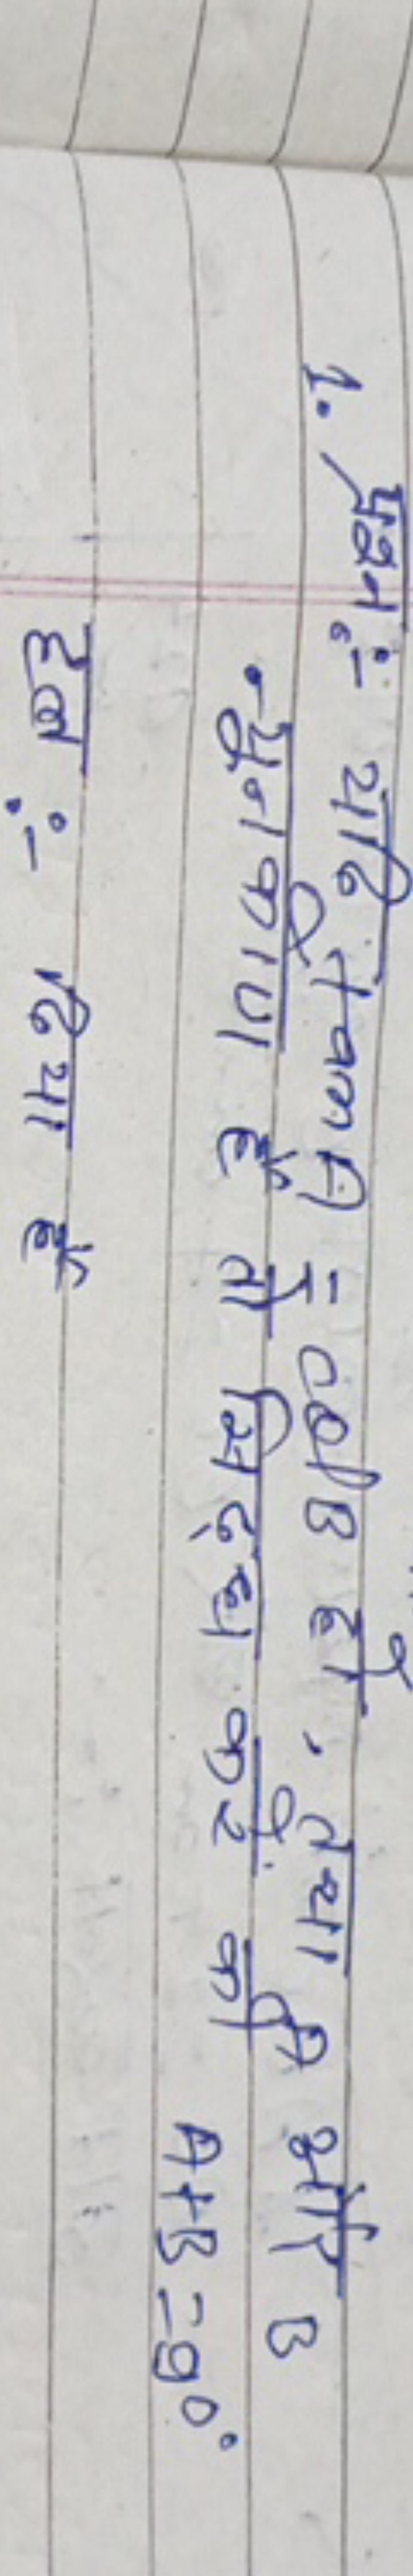 1. प्रश्न :- यदि tanA = cotB हो, तथा A और B
न्युनकोण हैं तो सिद्ध करें की A+B=90°
हल :- दिया हैं